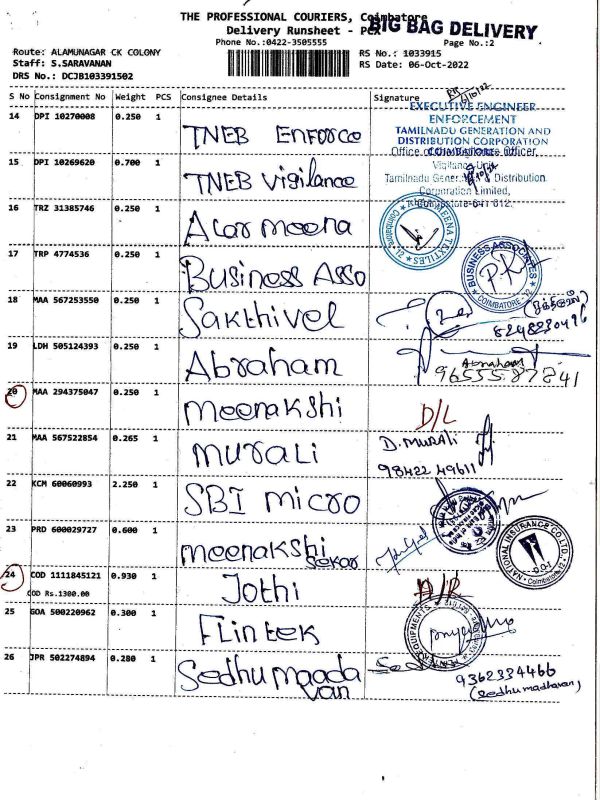 THE PROFESSIONAL COURIERS, Coimbatore
BIG BAG DELIVERY
Delivery Runsheet - PCX
Phone No.:0422-3505555
Page No.:2
Route: ALAMUNAGAR CK COLONY
RS No.: 1033915
Staff: S.SARAVANAN
RS Date: 06-Oct-2022
DRS No.: DCJB103391502
S No Consignment No Weight PCS Consignee Details Signature
14 DPI 10270008 0.250 1 TNEB Enforce
EXECUTIVE ENGINEER
ENFORCEMENT
TAMILNADU GENERATION AND
DISTRIBUTION CORPORATION
15 DPI 10269620 0.700 1 TNEB vigilance
Vigilance Unit,
Tamilnadu Distribution
Corporation Limited,
Coimbatore-641 012.
16 TRZ 31385746 0.250 1 Alar meena
MEENA TEXTILES Coimbatore - 12
17 TRP 4774536 0.250 1 Business Asso
BUSINESS ASSOCIATES COIMBATORE - 12
18 MAA 567253550 0.250 1 Sakthivel
(சக்திவேல்)
8248230496
19 LDH 505124393 0.250 1 Abraham
Abraham
9655587841
20 MAA 294375047 0.250 1 meenakshi D/L
21 MAA 567522854 0.265 1 murali D. MURALi
98422 49611
22 KCM 60060993 2.250 1 SBI micro
23 PRD 600029727 0.600 1 meenakshi
Sekar
NATIONAL INSURANCE CO.LTD. Coimbatore
24 COD 1111845121 0.930 1 Jothi
COD Rs.1300.00
25 GOA 500220962 0.300 1 Flintek
EQUIPMENTS
26 JPR 502274894 0.280 1 Sedhu maada
van
9362334466
(Sedhu madhavan)